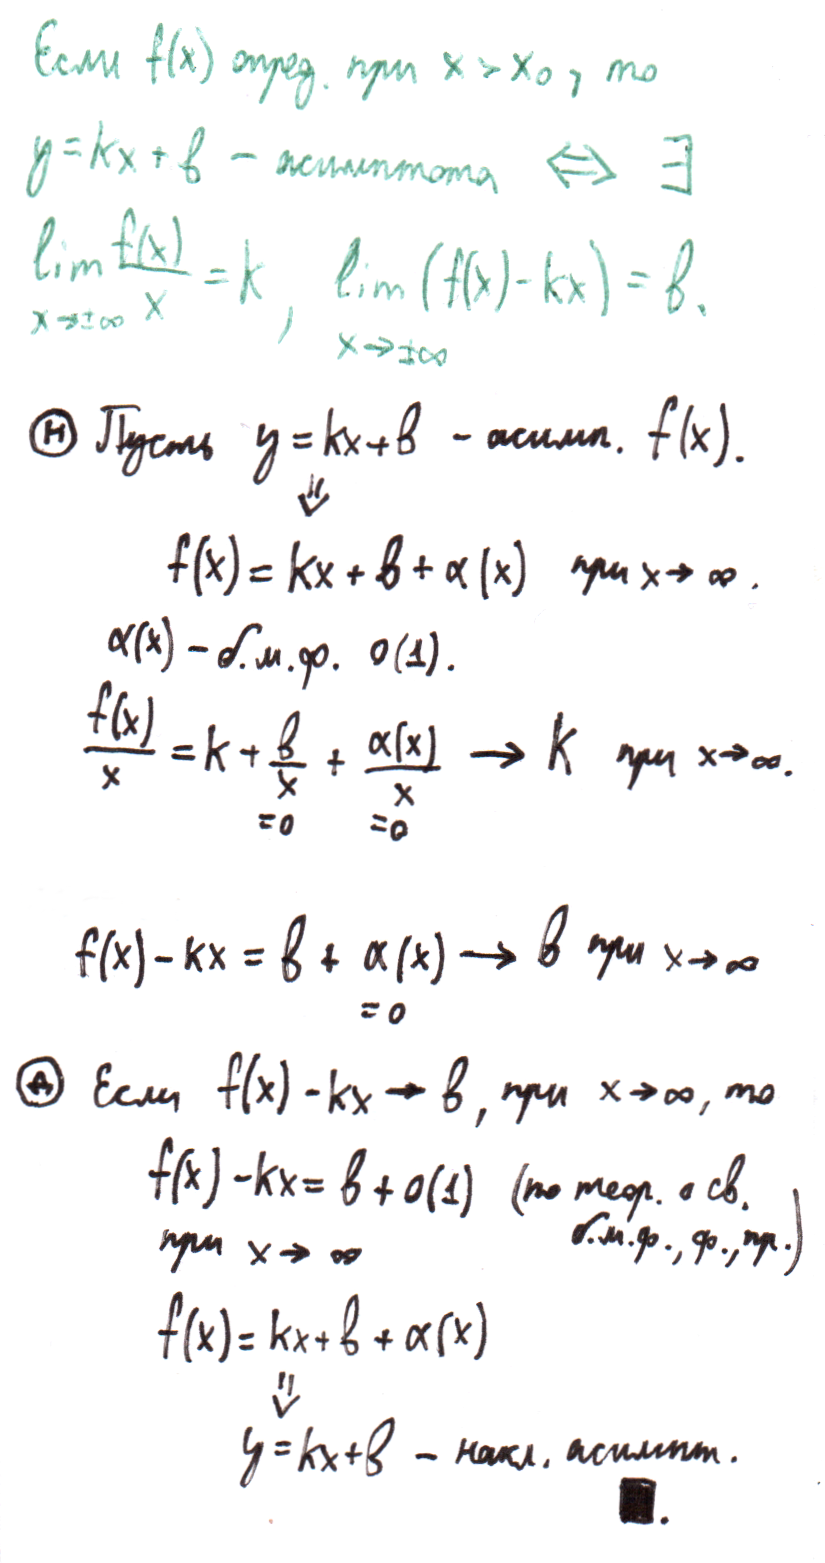 Если f(x) опред. при x > x₀, то
y = kx + b – асимптота ⇔ ∃
lim f(x)/x = k, lim (f(x) - kx) = b.
x→±∞ x→±∞
(Н) Пусть y = kx + b – асимп. f(x).
⇓
f(x) = kx + b + α(x) при x → ∞.
α(x) – б.м.ф. o(1).
f(x)/x = k + b/x + α(x)/x → k при x → ∞.
=0 =0
f(x) - kx = b + α(x) → b при x → ∞
=0
(Д) Если f(x) - kx → b, при x → ∞, то
f(x) - kx = b + o(1) (по теор. о св.
при x → ∞ б.м.ф., ф., пр.)
f(x) = kx + b + α(x)
⇓
y = kx + b – накл. асимпт.
■.